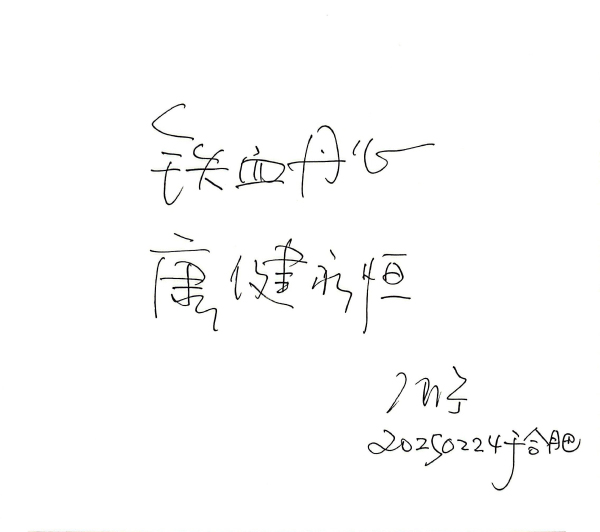 铁血丹心
康健永恒
20250224于合肥